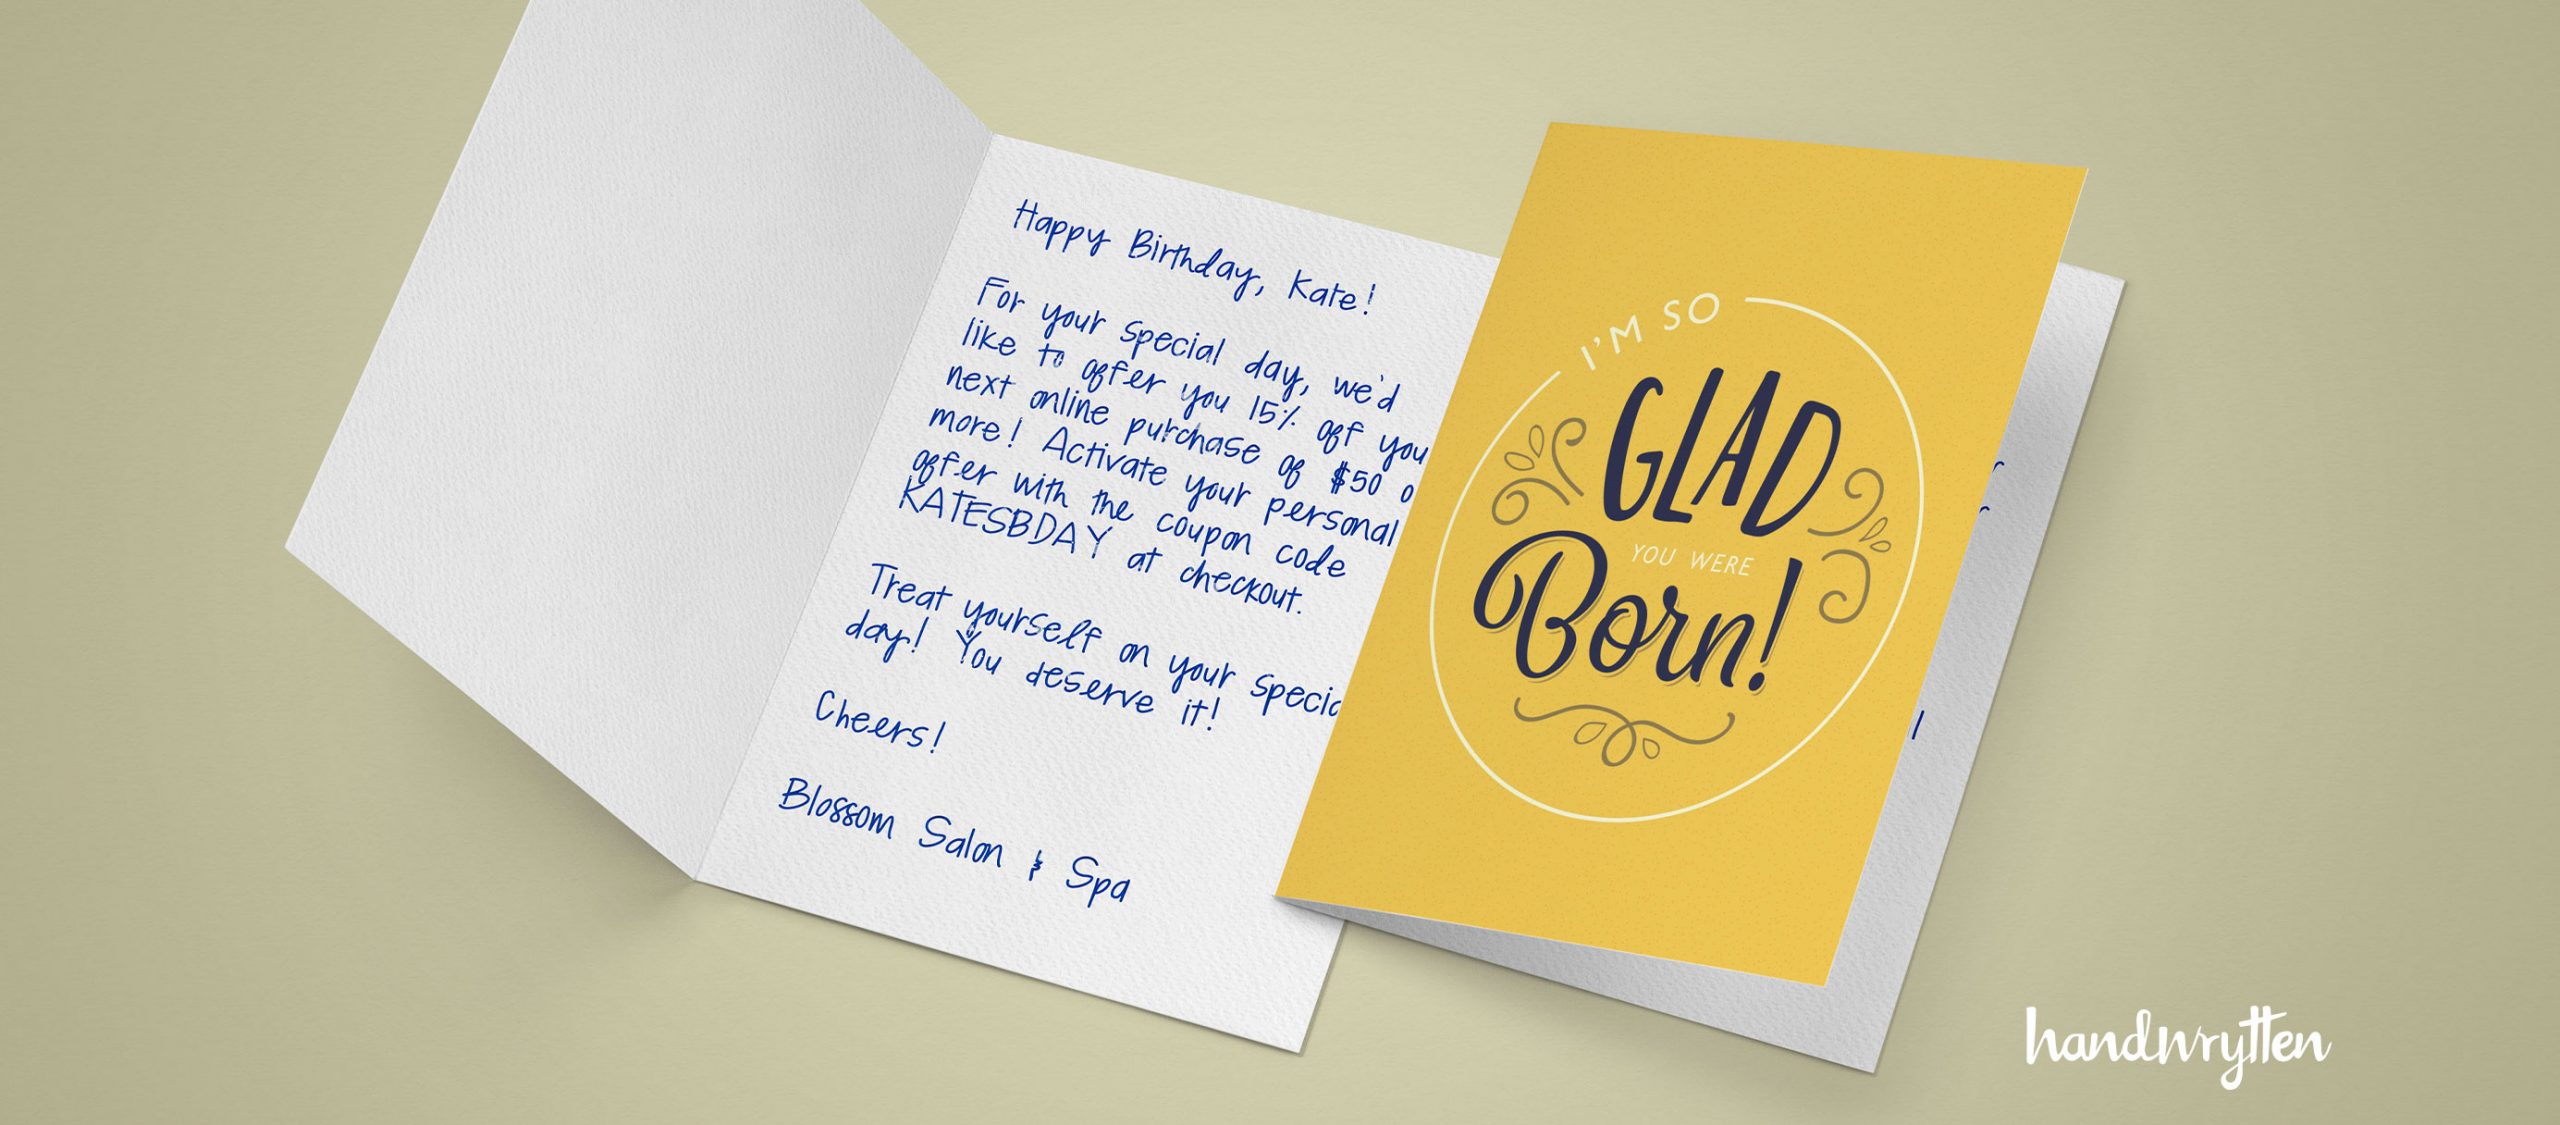 Happy Birthday, Kate!
For your special day, we'd
like to offer you 15% off you
next online purchase of $50 o
more! Activate your personal
offer with the coupon code
KATESBDAY at checkout.
Treat yourself on your specia
day! You deserve it!
Cheers!
Blossom Salon & Spa
I'M SO
GLAD
YOU WERE
Born!
handwrytten